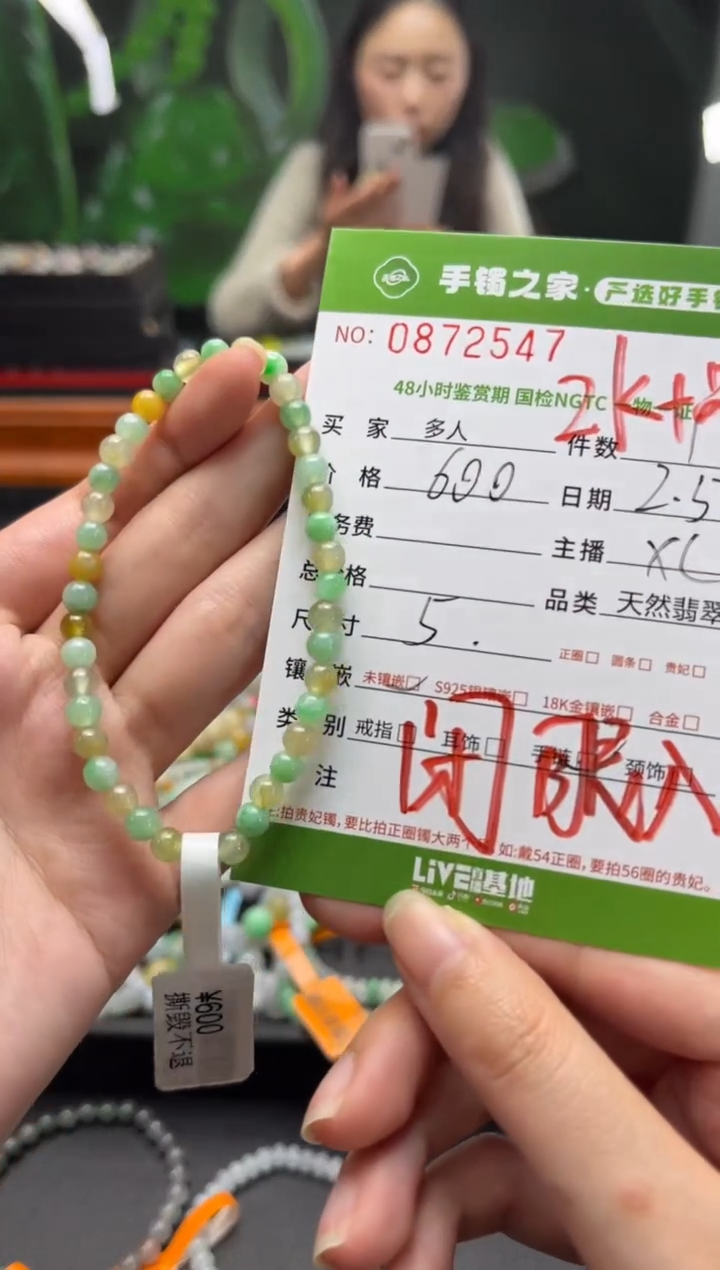 手镯之家·严选好手镯
NO: 0872547
2k+
48小时鉴赏期 国检NGTC 一物一证
买 家 多人 件数 1
价 格 600 日期 2.5
务费 主播 XL
总 价格 品类 天然翡翠
尺 寸 5.
正圈□ 圆条□ 贵妃□
镶 嵌 未镶嵌□ S925银镶嵌□ 18K金镶嵌□ 合金□
类 别 戒指□ 耳饰□ 手链□ 颈饰□
注
闭眼入
拍贵妃镯,要比拍正圈镯大两个 如:戴54正圈,要拍56圈的贵妃。
LiVE基地
¥600
撕毁不退